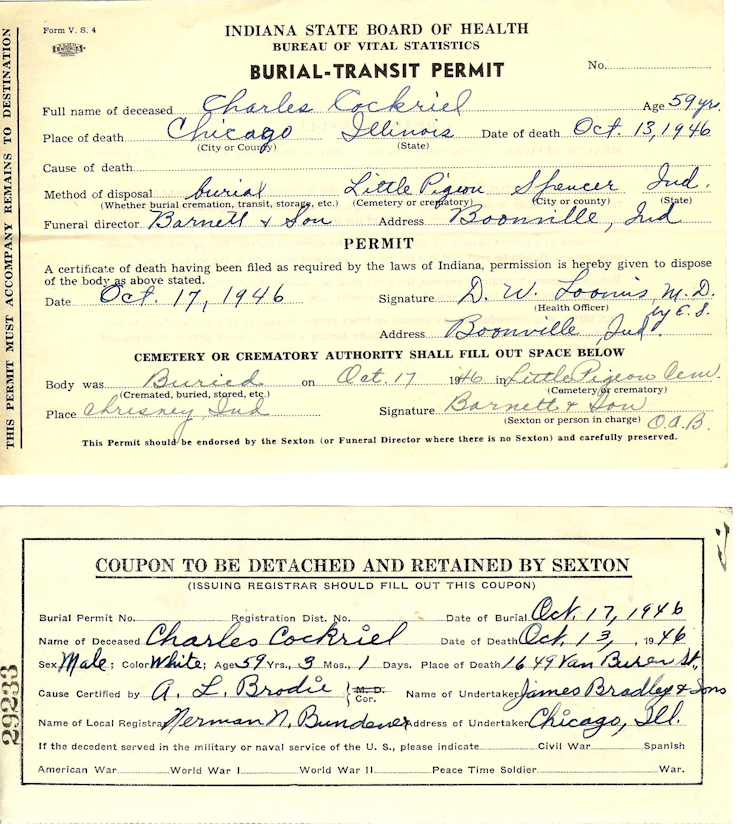 Form V. S. 4
INDIANA STATE BOARD OF HEALTH
BUREAU OF VITAL STATISTICS
BURIAL-TRANSIT PERMIT
No.
Full name of deceased Charles Cockriel Age 59 yrs.
Place of death Chicago Illinois Date of death Oct. 13, 1946
(City or County) (State)
Cause of death
Method of disposal burial Little Pigeon Spencer Ind.
(Whether burial cremation, transit, storage, etc.) (Cemetery or crematory) (City or county) (State)
Funeral director Barnett & Son Address Boonville, Ind
PERMIT
A certificate of death having been filed as required by the laws of Indiana, permission is hereby given to dispose
of the body as above stated.
Date Oct. 17, 1946 Signature D. W. Loomis, M. D.
(Health Officer) by E. S.
Address Boonville, Ind.
CEMETERY OR CREMATORY AUTHORITY SHALL FILL OUT SPACE BELOW
Body was Buried on Oct. 17 1946 in Little Pigeon Cem.
(Cremated, buried, stored, etc.) (Cemetery or crematory)
Place Chrisney, Ind Signature Barnett & Son
(Sexton or person in charge) O.A.B.
This Permit should be endorsed by the Sexton (or Funeral Director where there is no Sexton) and carefully preserved.
THIS PERMIT MUST ACCOMPANY REMAINS TO DESTINATION
COUPON TO BE DETACHED AND RETAINED BY SEXTON
(ISSUING REGISTRAR SHOULD FILL OUT THIS COUPON)
Burial Permit No. Registration Dist. No. Date of Burial Oct. 17, 1946
Name of Deceased Charles Cockriel Date of Death Oct. 13, 1946
Sex Male; Color White; Age 59 Yrs., 3 Mos., 1 Days. Place of Death 1649 Van Buren St.,
Cause Certified by A. L. Brodie { M. D. Cor. Name of Undertaker James Bradley & Sons
Name of Local Registrar Herman N. Address of Undertaker Chicago, Ill.
If the decedent served in the military or naval service of the U. S., please indicate Civil War Spanish
American War World War I World War II Peace Time Soldier War.
29233